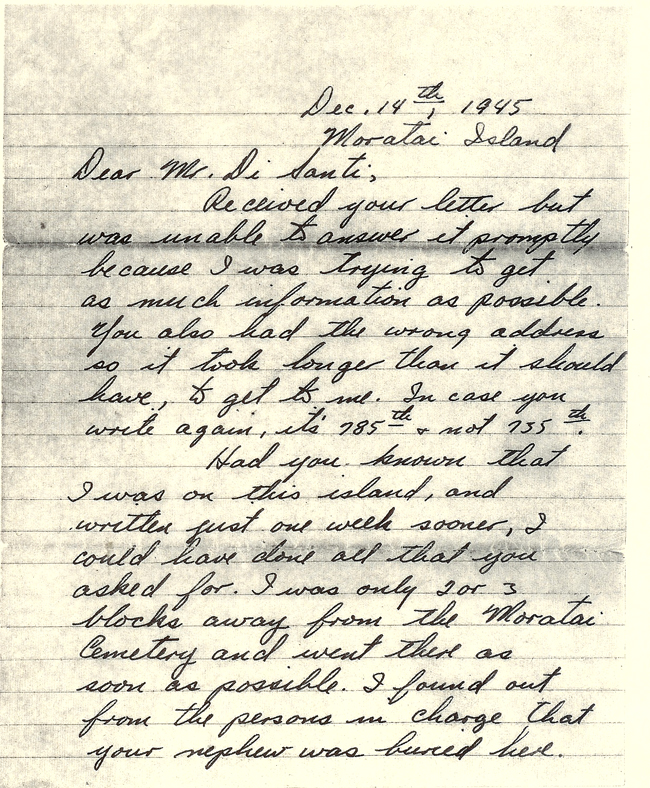 Dec. 14th, 1945
Moratai Island
Dear Mr. Di Santi,
Received your letter but
was unable to answer it promptly
because I was trying to get
as much information as possible.
You also had the wrong address
so it took longer than it should
have, to get to me. In case you
write again, it's 785th & not 735th.
Had you known that
I was on this island, and
written just one week sooner, I
could have done all that you
asked for. I was only 2 or 3
blocks away from the Moratai
Cemetery and went there as
soon as possible. I found out
from the persons in charge, that
your nephew was buried here.